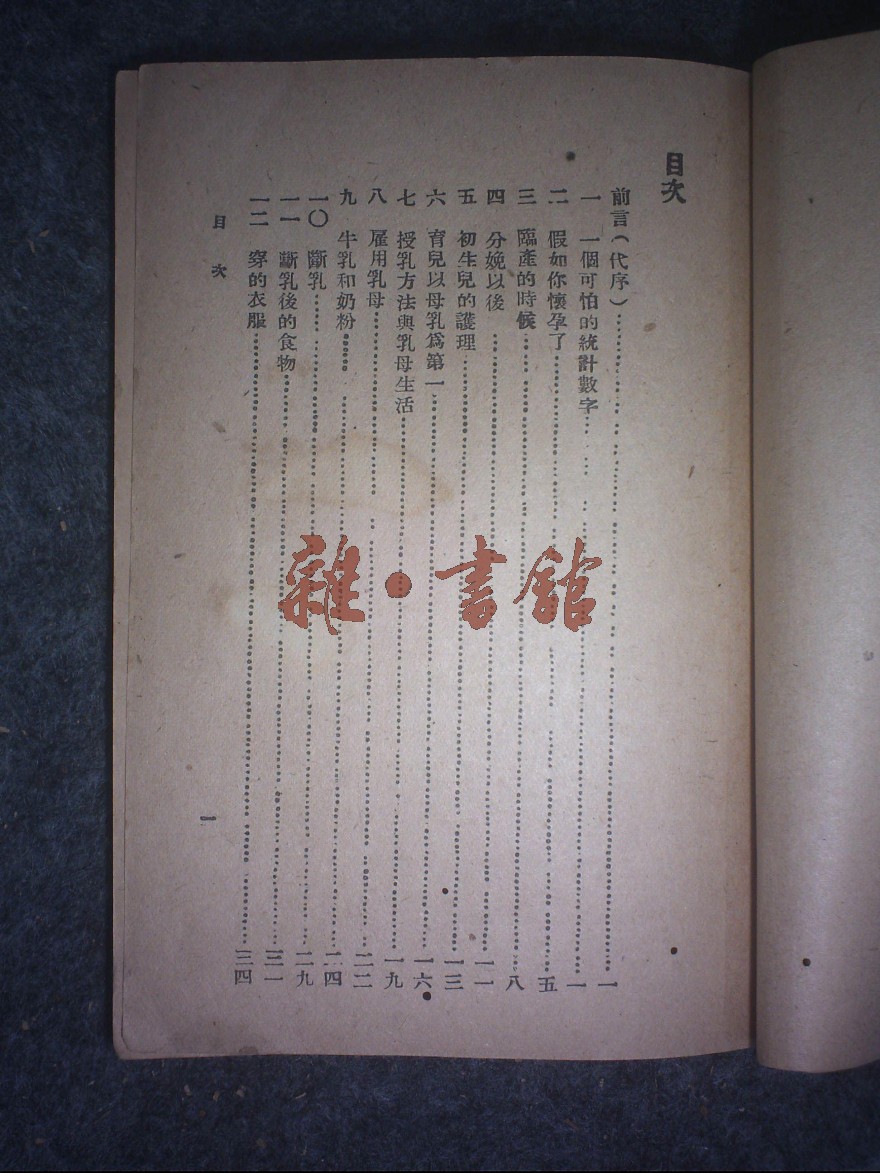 目次
前言(代序)……一
一 一個可怕的統計數字……一
二 假如你懷孕了……五
三 臨產的時候……八
四 分娩以後……一一
五 初生兒的護理……一三
六 育兒以母乳爲第一……一六
七 授乳方法與乳母生活……一九
八 雇用乳母……二二
九 牛乳和奶粉……二四
一〇 斷乳……二九
一一 斷乳後的食物……三一
一二 穿的衣服……三四
目次
一
雜·書館